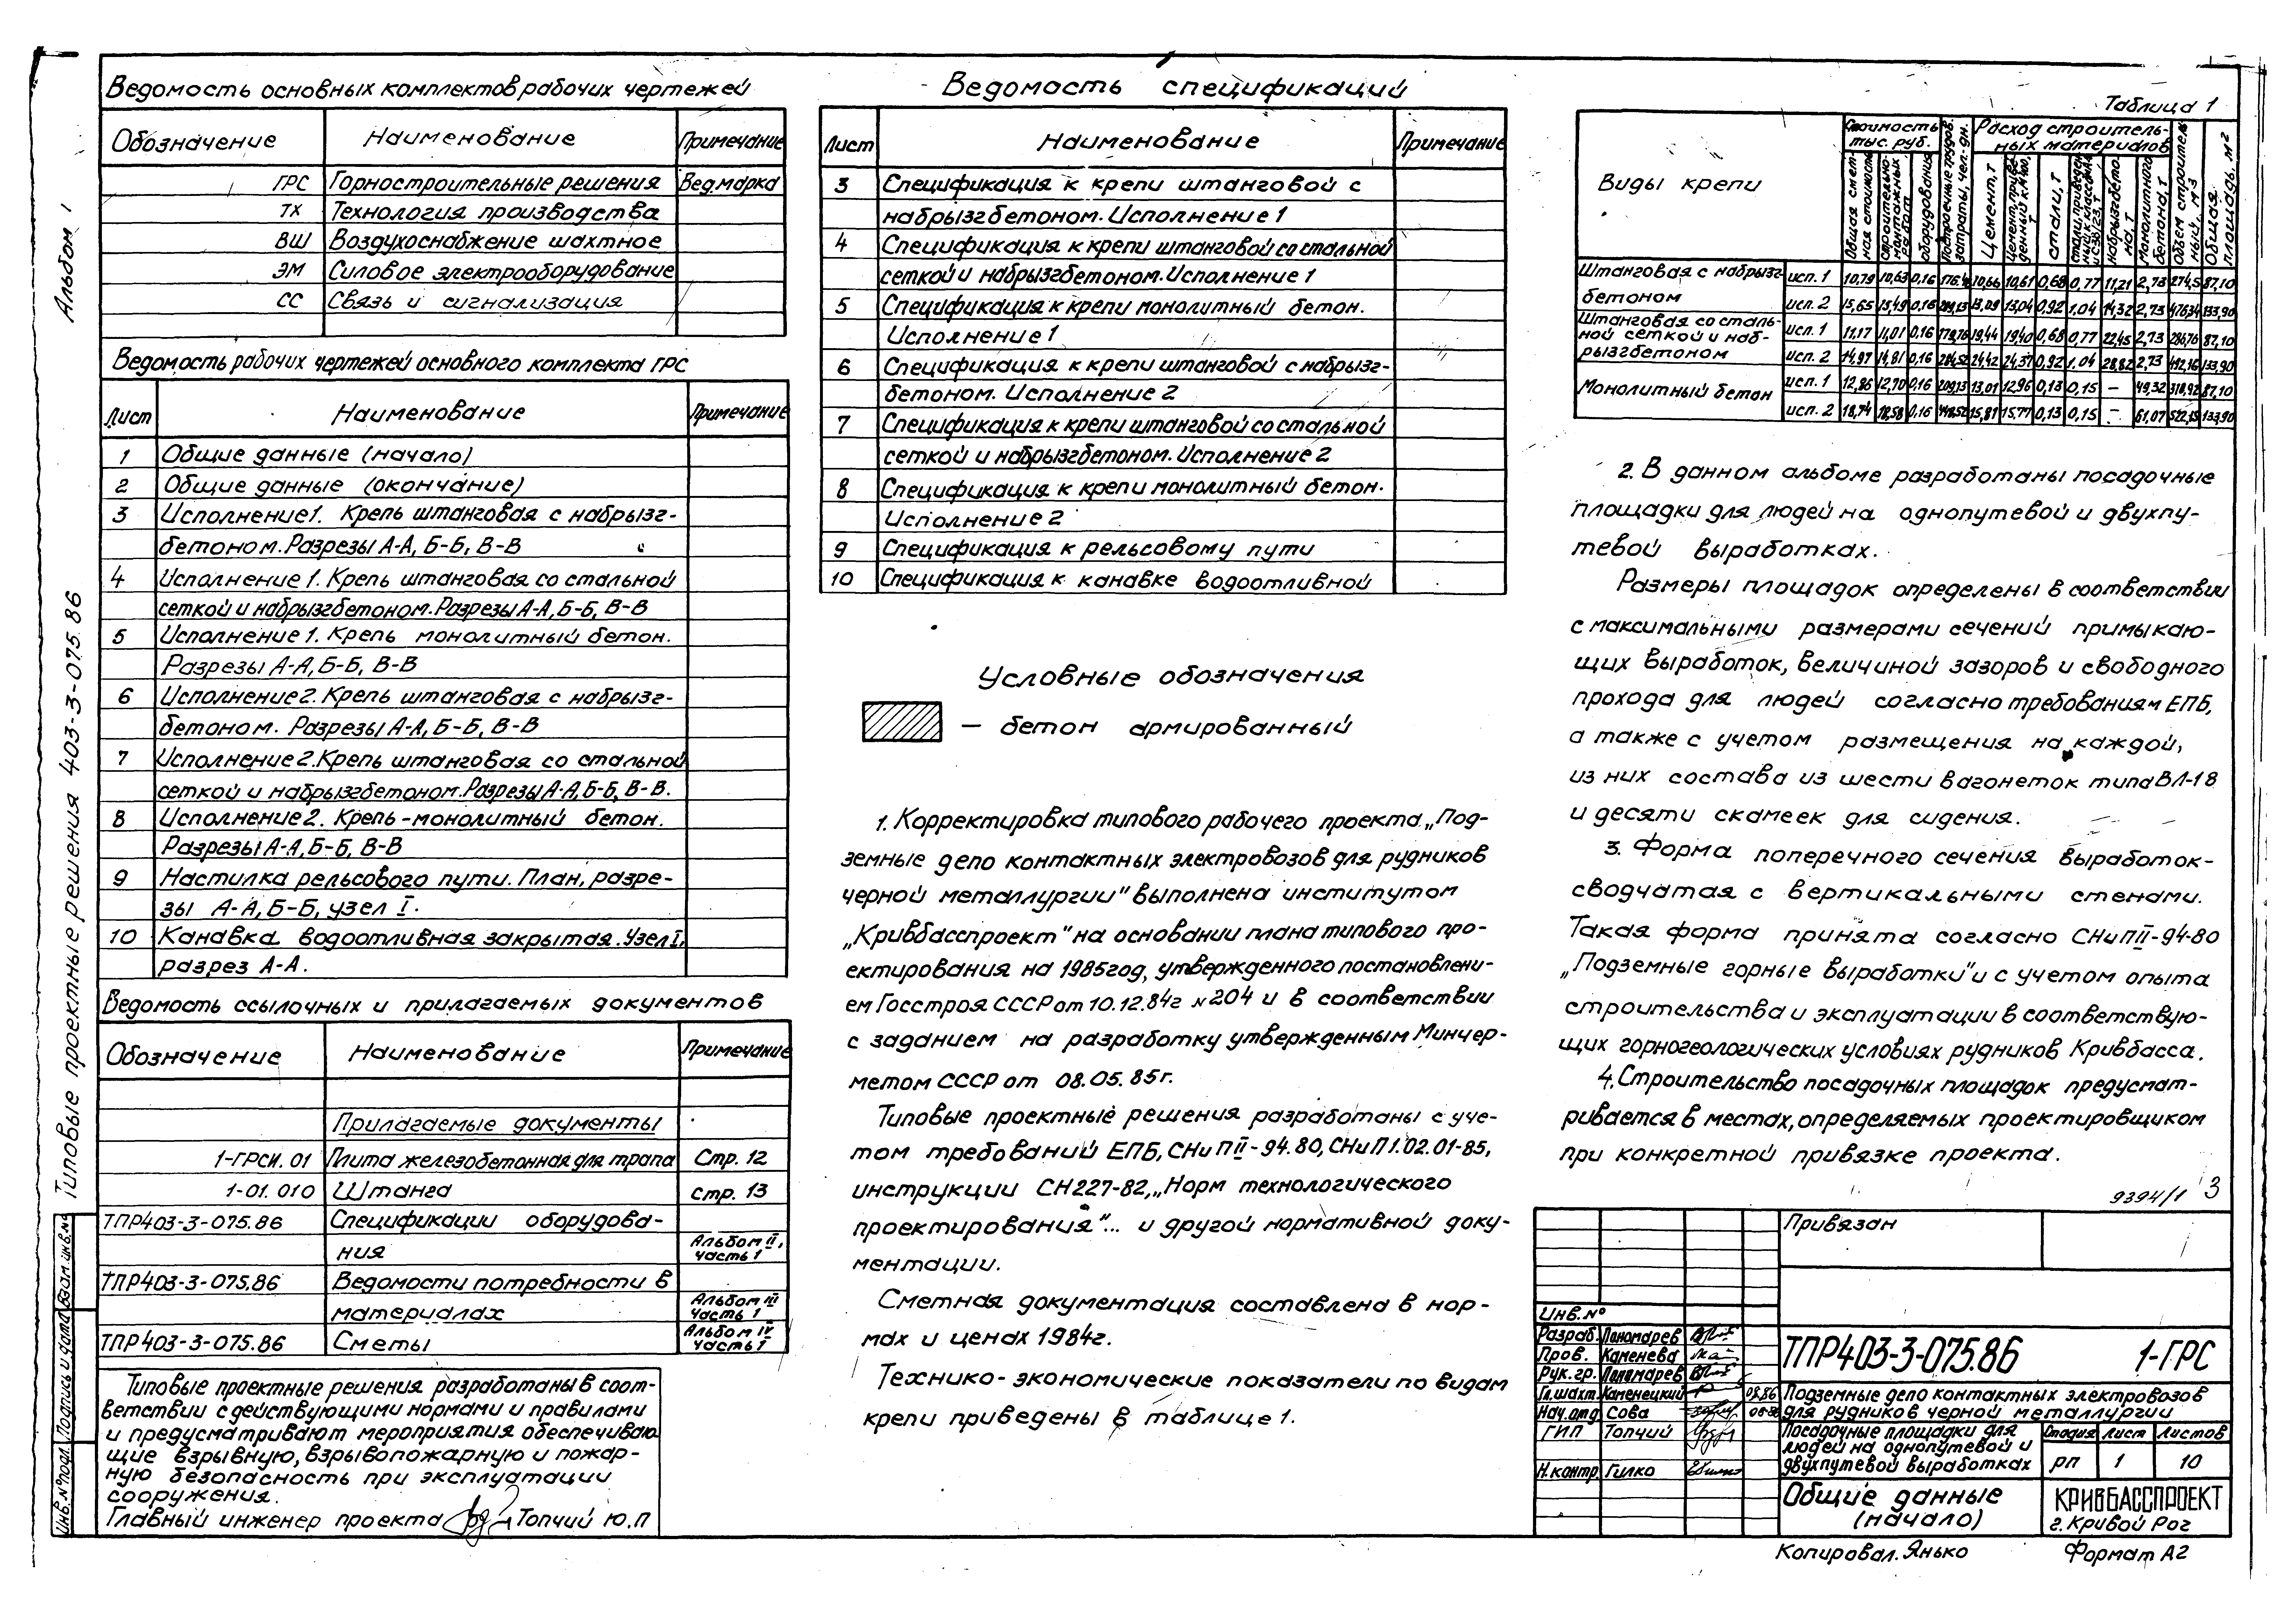 Альбом 1
Типовые проектные решения 403-3-075.86
Взам.инв.№
Подпись и дата
Инв.№подл.
Ведомость основных комплектов рабочих чертежей
Обозначение Наименование Примечание
ГРС Горностроительные решения Вед.марка
ТХ Технология производства
ВШ Воздухоснабжение шахтное
ЭМ Силовое электрооборудование
СС Связь и сигнализация
Ведомость рабочих чертежей основного комплекта ГРС
Лист Наименование Примечание
1 Общие данные (начало)
2 Общие данные (окончание)
3 Исполнение 1. Крепь штанговая с набрызг-
бетоном. Разрезы А-А, Б-Б, В-В
4 Исполнение 1. Крепь штанговая со стальной
сеткой и набрызгбетоном. Разрезы А-А, Б-Б, В-В
5 Исполнение 1. Крепь монолитный бетон.
Разрезы А-А, Б-Б, В-В
6 Исполнение 2. Крепь штанговая с набрызг-
бетоном. Разрезы А-А, Б-Б, В-В
7 Исполнение 2. Крепь штанговая со стальной
сеткой и набрызгбетоном. Разрезы А-А, Б-Б, В-В.
8 Исполнение 2. Крепь-монолитный бетон.
Разрезы А-А, Б-Б, В-В
9 Настилка рельсового пути. План, разре-
зы А-А, Б-Б, узел I.
10 Канавка водоотливная закрытая. Узел I,
разрез А-А.
Ведомость ссылочных и прилагаемых документов
Обозначение Наименование Примечание
Прилагаемые документы
1-ГРСИ.01 Плита железобетонная для трапа Стр. 12
1-01.010 Штанга стр. 13
ТПР403-3-075.86 Спецификации оборудова-
ния Альбом II, часть 1
ТПР403-3-075.86 Ведомости потребности в
материалах Альбом III часть 1
ТПР403-3-075.86 Сметы Альбом IV часть 1
Типовые проектные решения разработаны в соот-
ветствии с действующими нормами и правилами
и предусматривают мероприятия обеспечиваю
щие взрывную, взрывопожарную и пожар-
ную безопасность при эксплуатации
сооружения.
Главный инженер проекта Топчий Ю.П
Ведомость спецификаций
Лист Наименование Примечание
3 Спецификация к крепи штанговой с
набрызгбетоном. Исполнение 1
4 Спецификация к крепи штанговой со стальной
сеткой и набрызгбетоном. Исполнение 1
5 Спецификация к крепи монолитный бетон.
Исполнение 1
6 Спецификация к крепи штанговой с набрызг-
бетоном. Исполнение 2
7 Спецификация к крепи штанговой со стальной
сеткой и набрызгбетоном. Исполнение 2
8 Спецификация к крепи монолитный бетон.
Исполнение 2
9 Спецификация к рельсовому пути
10 Спецификация к канавке водоотливной
Условные обозначения
— бетон армированный
1. Корректировка типового рабочего проекта „Под-
земные депо контактных электровозов для рудников
черной металлургии" выполнена институтом
„Кривбасспроект" на основании плана типового про-
ектирования на 1985год, утвержденного постановлени-
ем Госстроя СССР от 10.12.84г №204 и в соответствии
с заданием на разработку утвержденным Минчер-
метом СССР от 08.05.85г.
Типовые проектные решения разработаны с уче-
том требований ЕПБ, СНиП II-94.80, СНиП 1.02.01-85,
инструкции СН227-82, „Норм технологического
проектирования"... и другой нормативной доку-
ментации.
Сметная документация составлена в нор-
мах и ценах 1984г.
Технико-экономические показатели по видам
крепи приведены в таблице 1.
Таблица 1
Виды крепи
Стоимость тыс. руб.
Общая смет- ная стоимость
строительно- монтажных работ
оборудования
Расход строитель- ных материалов
Цемент, т
стали, т
набрызгбето- на, т
Монолитного бетона, т
Объем строитель ный, м3
Общая площадь, м²
Штанговая с набрызг- бетоном
исп. 1 10,79 10,63 0,16 10,66 10,61 0,68 0,77 11,21 2,73 274,5 87,10
исп. 2 15,65 15,49 0,16 13,09 13,04 0,92 1.04 14,32 2,73 133,90
Штанговая со сталь- ной сеткой и наб- рызгбетоном
исп. 1 11,17 11,01 0,16 19,44 19,40 0,68 0,77 22,45 2,73 286,76 87,10
исп. 2 14,97 14,81 0,16 24,42 24,37 0,92 1.04 28,82 2,73 492,16 133,90
Монолитный бетон
исп. 1 12,86 12,70 0,16 209,13 13,01 12,96 0,13 0,15 — 49,32 318,92 87,10
исп. 2 18,74 18,58 0,16 15,81 15,77 0,13 0,15 — 61,07 133,90
2. В данном альбоме разработаны посадочные
площадки для людей на однопутевой и двухпу-
тевой выработках.
Размеры площадок определены в соответствии
с максимальными размерами сечений примыкаю-
щих выработок, величиной зазоров и свободного
прохода для людей согласно требованиям ЕПБ,
а также с учетом размещения на каждой,
из них состава из шести вагонеток типа ВЛ-18
и десяти скамеек для сидения.
3. Форма поперечного сечения выработок-
сводчатая с вертикальными стенами.
Такая форма принята согласно СНиП II-94-80
„Подземные горные выработки" и с учетом опыта
строительства и эксплуатации в соответствую-
щих горногеологических условиях рудников Кривбасса.
4. Строительство посадочных площадок предусмат-
ривается в местах, определяемых проектировщиком
при конкретной привязке проекта.
9394/1 3
Привязан
Инв.№
Разраб. Пономарев
Пров. Каменева
Рук.гр. Пономарев
Гл.шахт. Каменецкий 08.86
Нач.отд Сова 08.86
ГИП Топчий
Н.контр. Гилко
ТПР403-3-075.86 1-ГРС
Подземные депо контактных электровозов
для рудников черной металлургии
Посадочные площадки для
людей на однопутевой и
двухпутевой выработках
Стадия Лист Листов
РП 1 10
Общие данные
(начало)
КРИВБАССПРОЕКТ
г. Кривой Рог
Копировал. Янько Формат А2